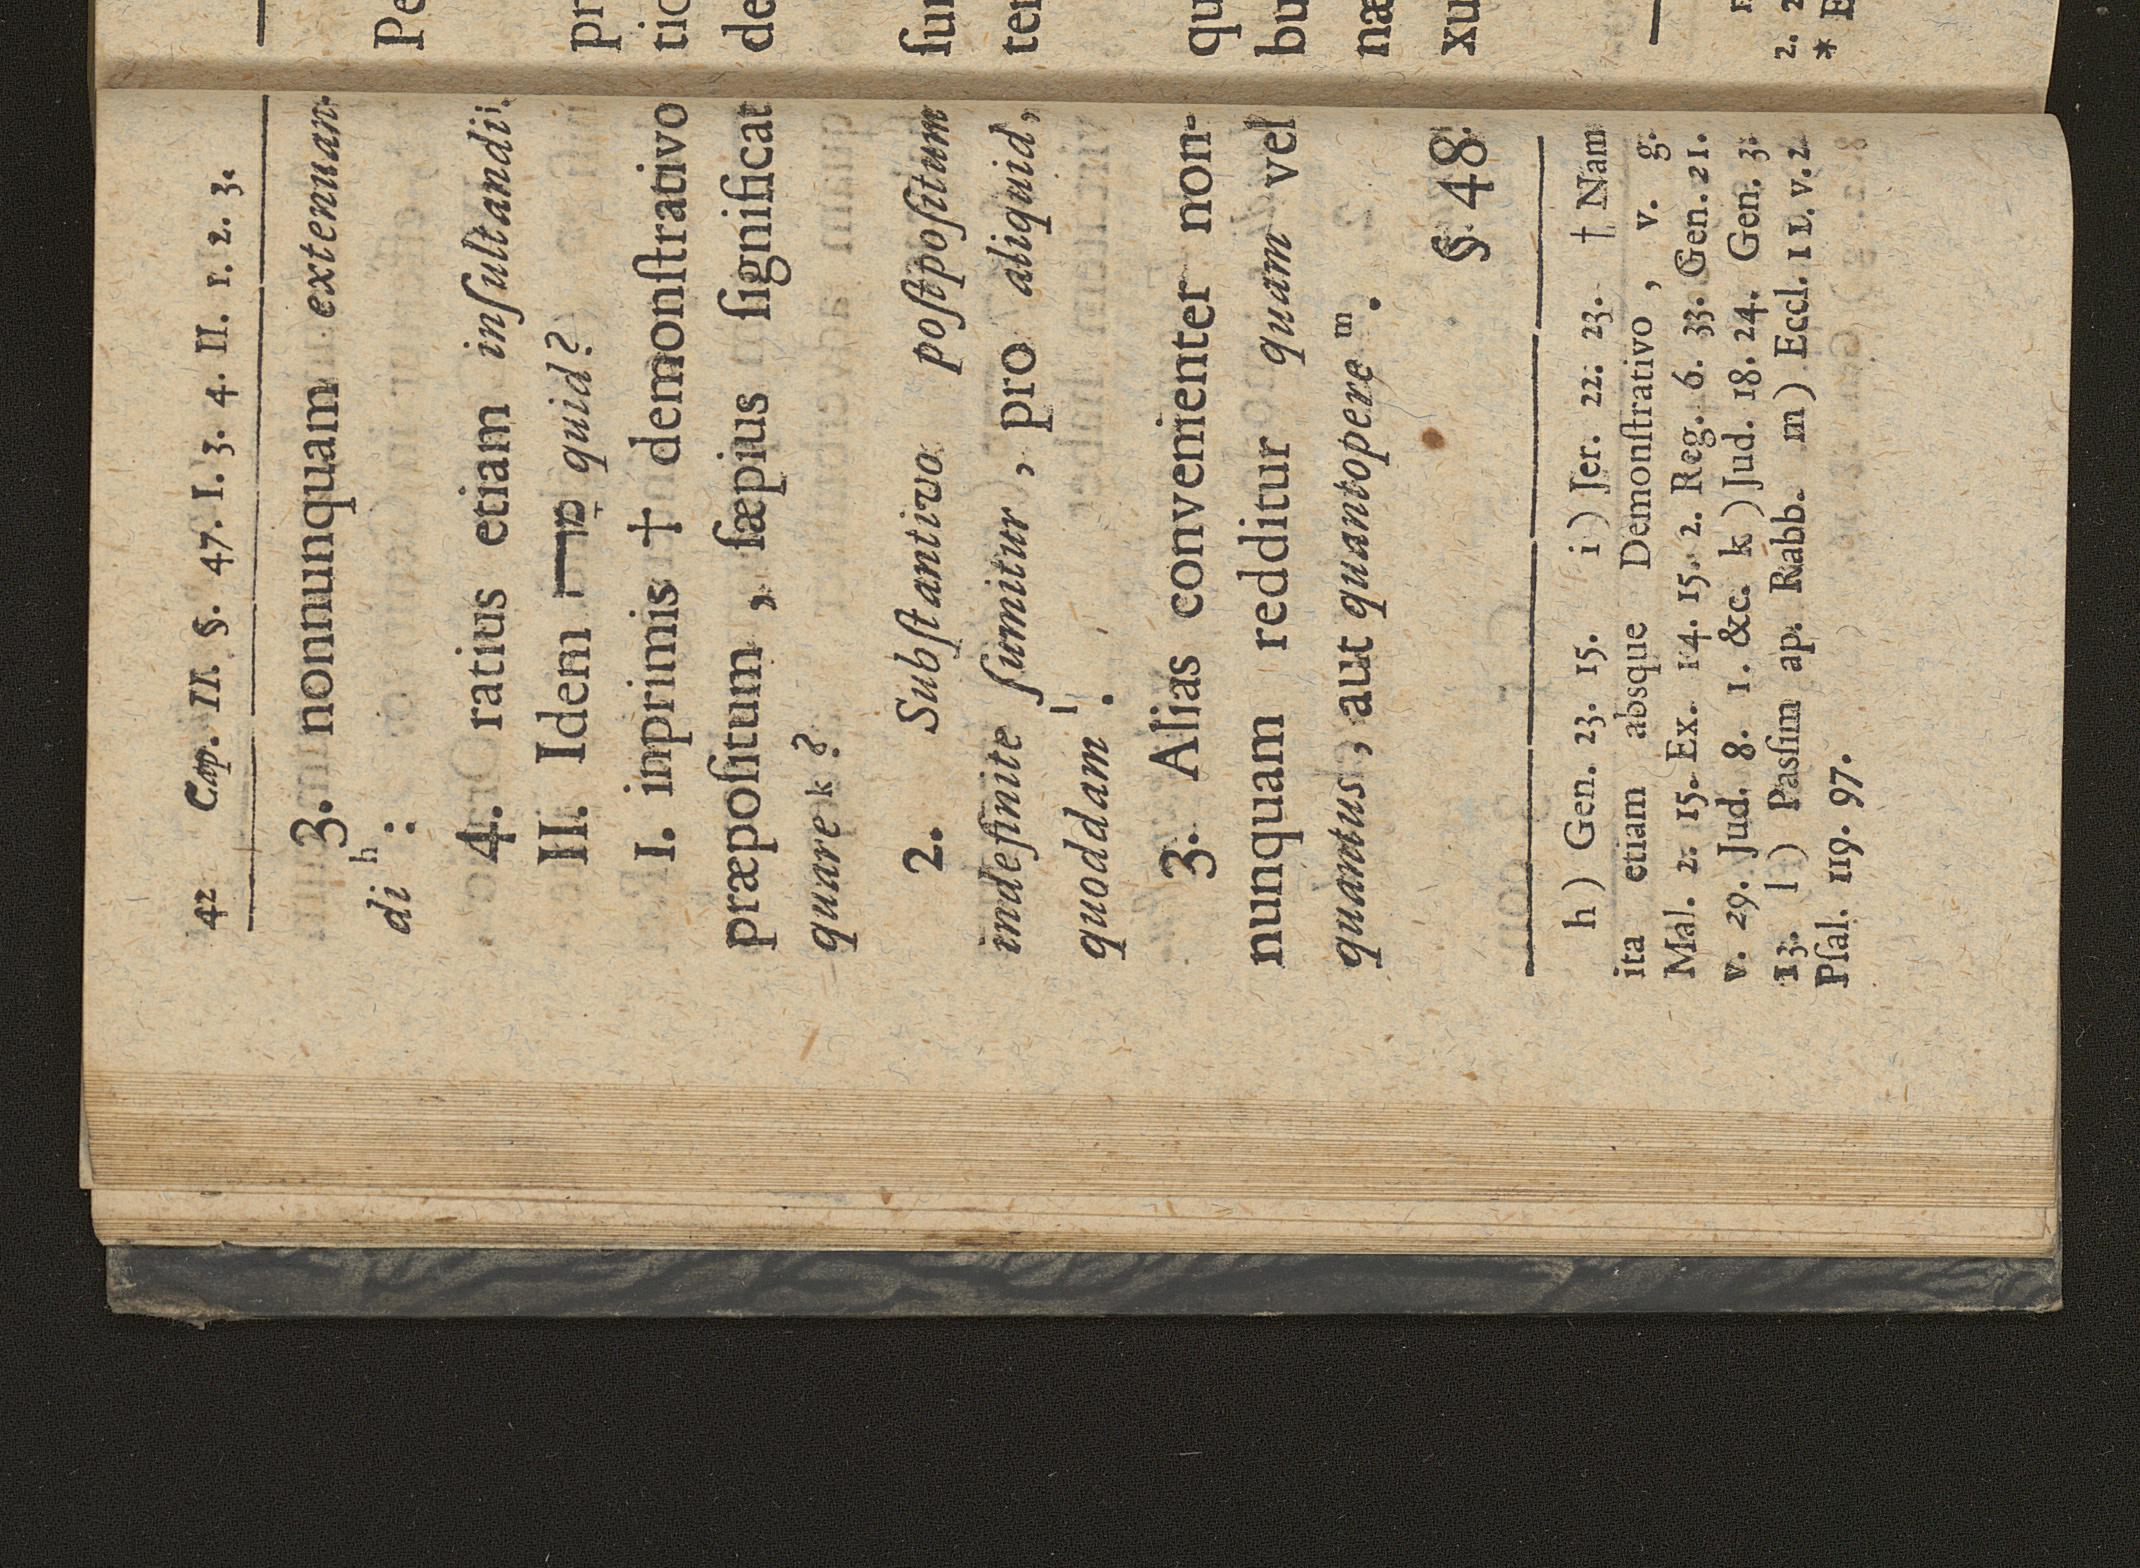 42 Cap. II. §. 47. I. 3. 4. II. 1. 2. 3.
3. nonnunquam extenuan-
di h:
4. ratius etiam inſultandi i.
II. Idem מַה־ quid?
1. inprimis † demonſtrativo
præpoſitum, ſæpius ſignificat
quare k?
2. Subſtantivo poſtpoſitum
indefinite ſumitur, pro aliquid,
quoddam l.
3. Alias convenienter non-
nunquam redditur quam vel
quantus, aut quantopere m.
§. 48.
h) Gen. 23. 15. i) Jer. 22. 23. † Nam
ita etiam absque Demonſtrativo, v. g.
Mal. 2. 15. Ex. 14. 15. 2. Reg. 6. 33. Gen. 21.
v. 29. Jud. 8. 1. &c. k) Jud. 18. 24. Gen. 3.
13. l) Pasſim ap. Rabb. m) Eccl. 11. v. 2
Pſal. 119. 97.
Pe
pr
tic
de
ſur
ter
qu
bu
næ
xu
2. 2
* E